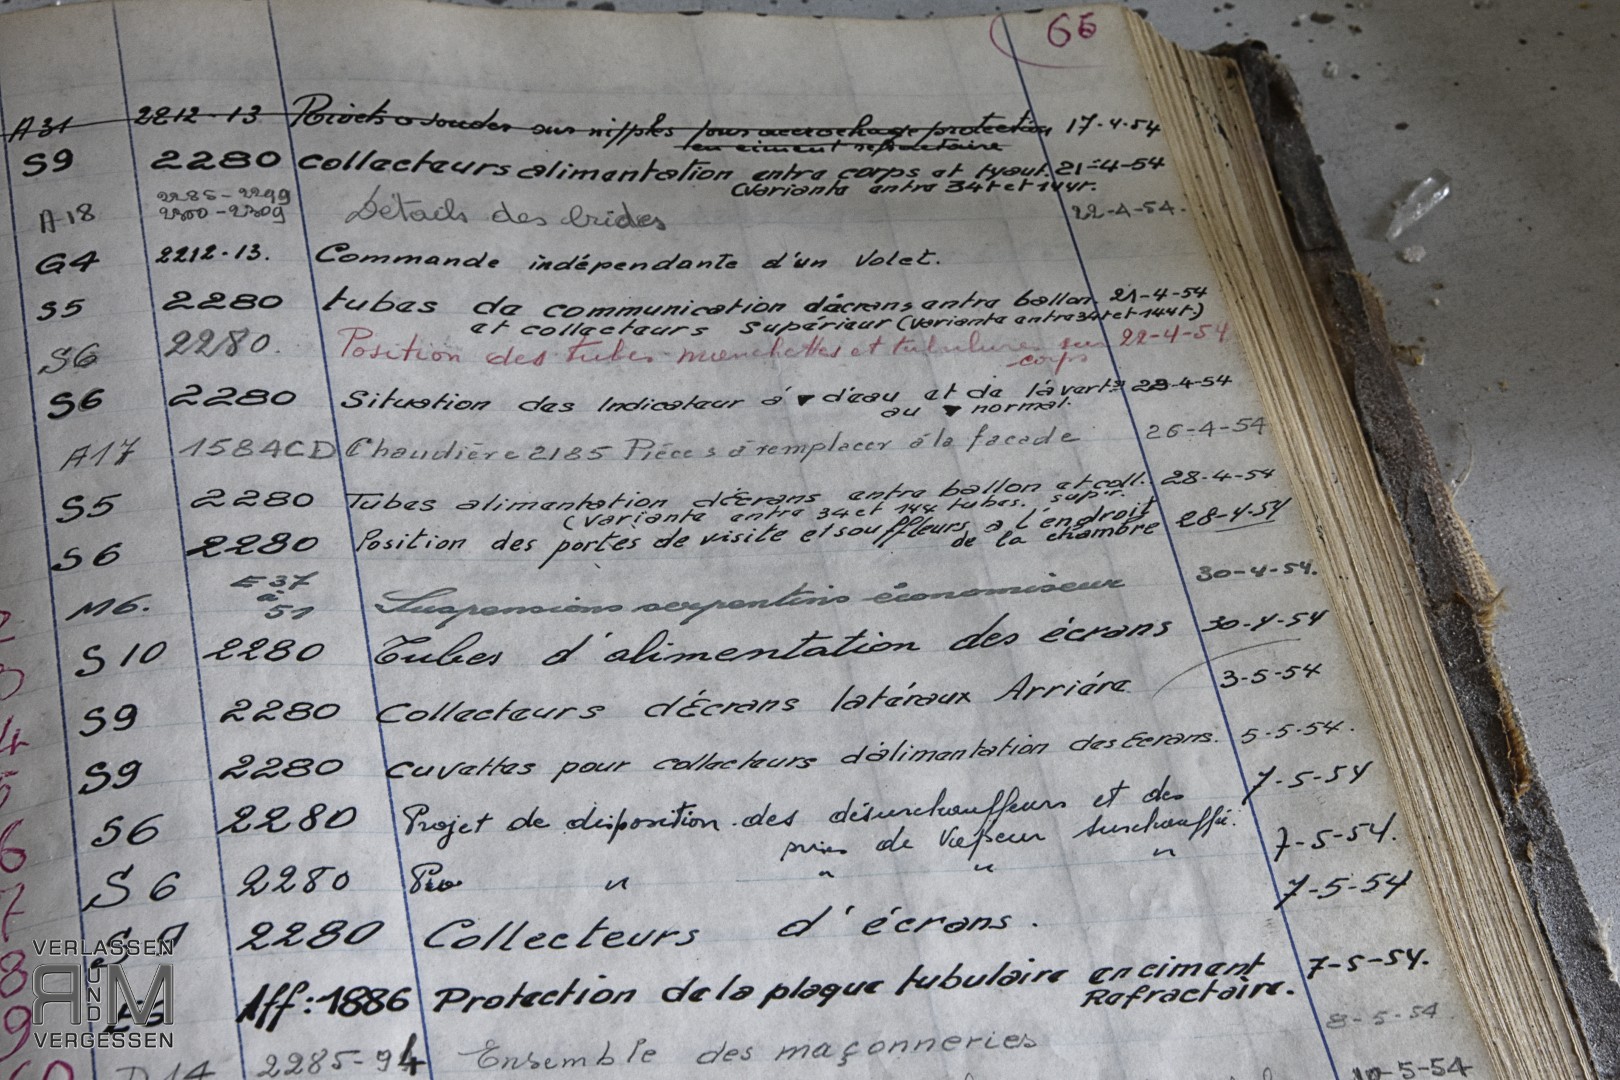 65
A31 2212-13 Rivets à souder sur nipples pour accrochage protection 17-4-54
en ciment refractaire
S9 2280 collecteurs alimentation entre corps et tyaut. 21-4-54
(Variante entre 34t et 144t.
A18 2285-2299 Détails des brides 22-4-54.
2300-2309
G4 2212-13. Commande indépendante d'un Volet.
S5 2280 tubes de communication d'écrans entre ballon. 21-4-54
et collecteurs supérieur (Variante entre 34t et 144t.)
S6 2280. Position des tubes manchettes et tubulures sur 22-4-54
corps
S6 2280 Situation des Indicateur à ▼ d'eau et de l'avert. 23-4-54
au ▼ normal.
A17 1584CD Chaudière 2185 Pièces à remplacer à la façade 26-4-54
S5 2280 Tubes alimentation d'Écrans entre ballon et coll. 28-4-54
(Variante entre 34 et 144 tubes. supr.
S6 2280 Position des portes de visite et souffleurs à l'endroit 28-4-54
de la chambre
M6. E37 Suspensions serpentins économiseur 30-4-54.
à
51
S10 2280 Tubes d'alimentation des écrans 30-4-54
S9 2280 Collecteurs d'Écrans latéraux Arrière 3-5-54
S9 2280 cuvettes pour collecteurs d'alimentation des Ecrans. 5-5-54.
S6 2280 Projet de disposition des désurchauffeurs et des 7-5-54
prises de Vapeur Surchauffé.
S6 2280 " " " " 7-5-54.
S9 2280 Collecteurs d'écrans. 7-5-54
Aff: 1886 Protection de la plaque tubulaire en ciment 7-5-54.
Refractaire.
D14 2285-94 Ensemble des maçonneries 8-5-54.
10-5-54
VERLASSEN
RUNDM
VERGESSEN